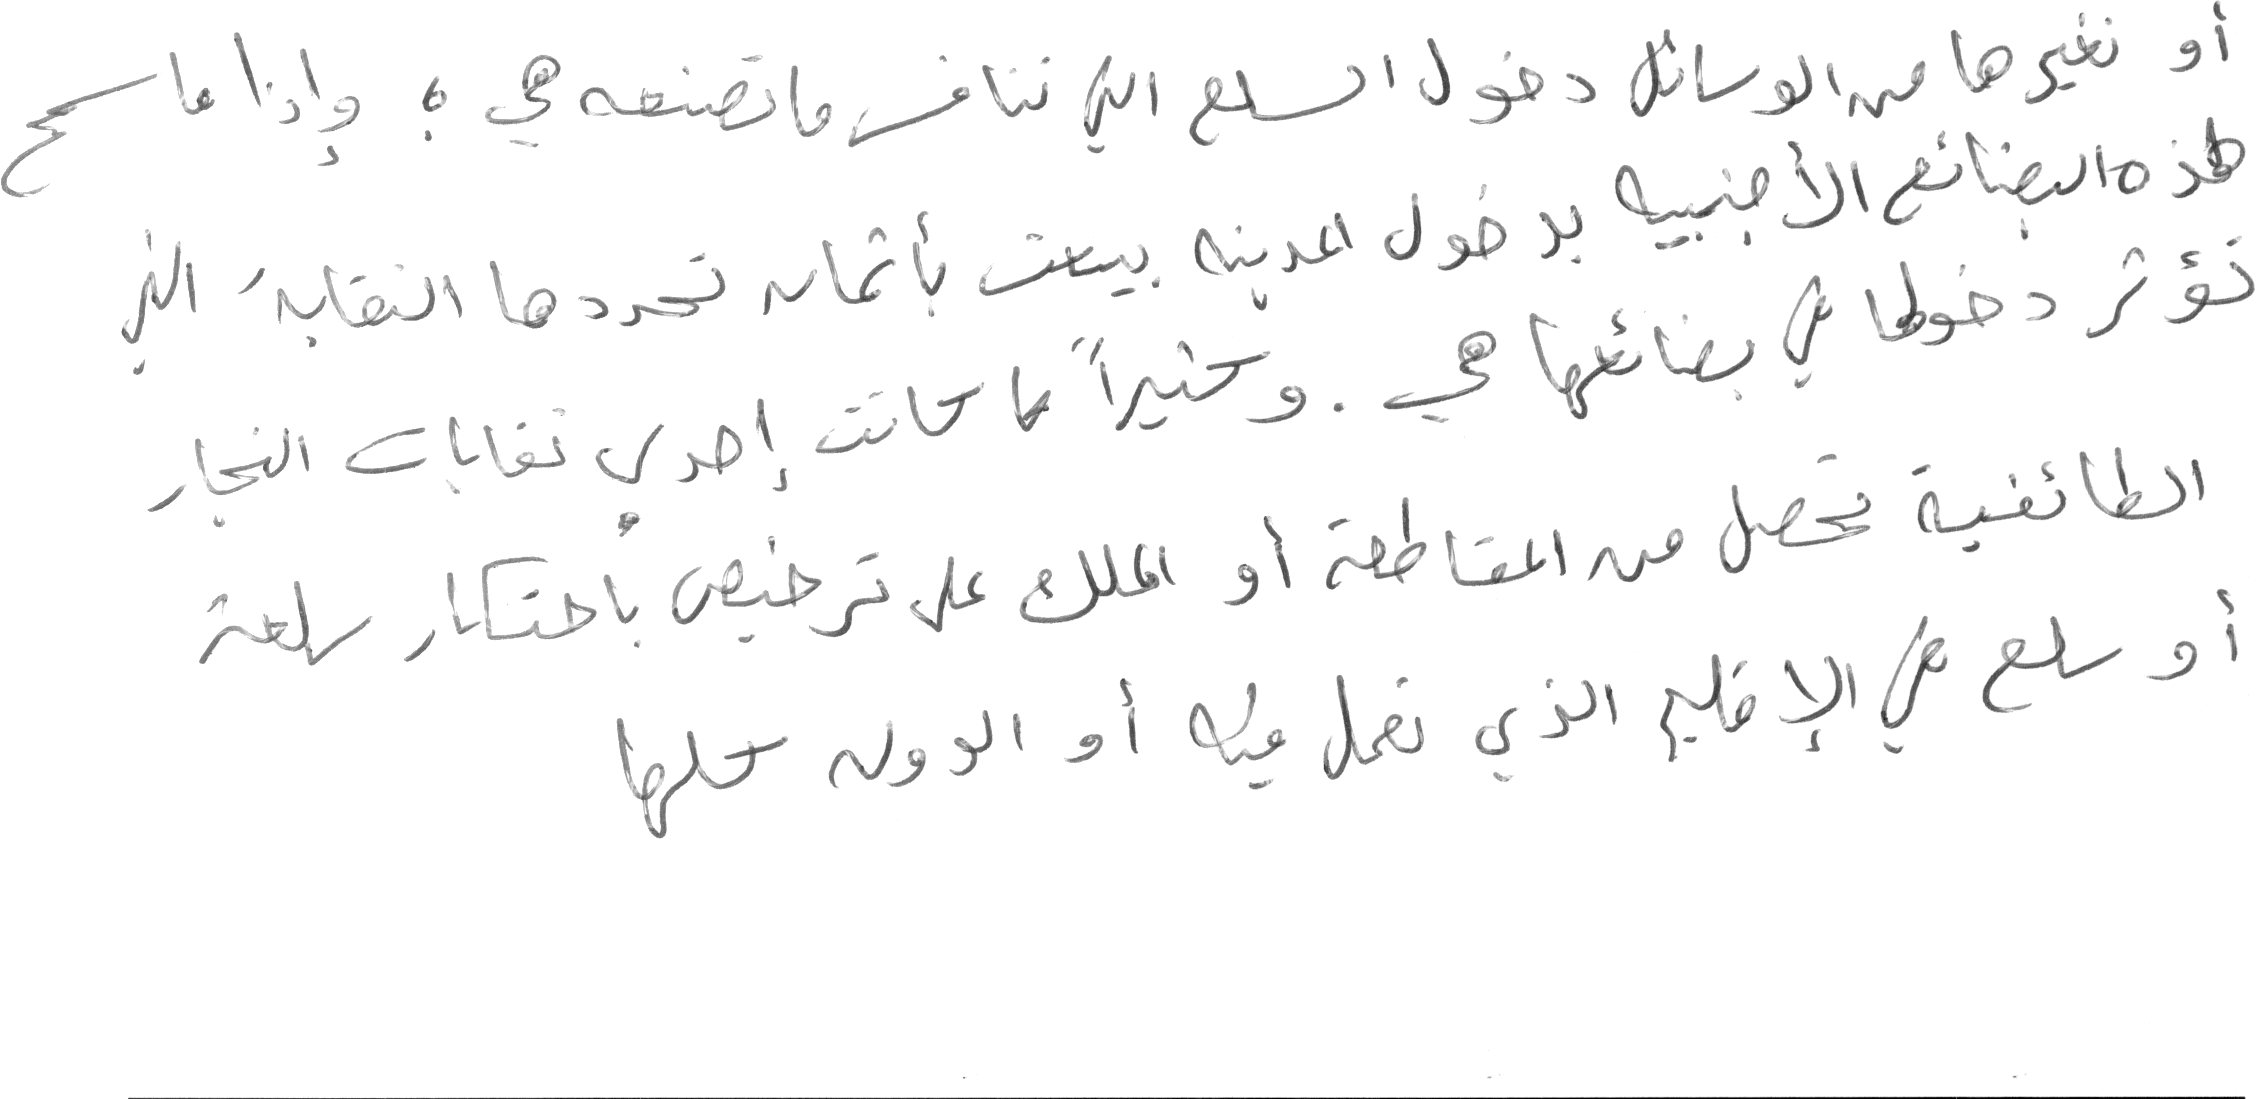 أو بغيرها من الوسائل دخول السلع التي تنافس ما تصنعه هي ؛ وإذا ما سمح
لهذه البضائع الأجنبيه بدخول المدينه بيعت بأثمان تحددها النقابه التي
تؤثر دخولها في بضائعها هي . وكثيراً ما كانت إحدي نقابات التجار
الطائفية تحصل من المقاطعة أو الملك على ترخيص باحتكار سلعة
أو سلع في الإقليم الذي تعمل فيه أو الدوله كلها